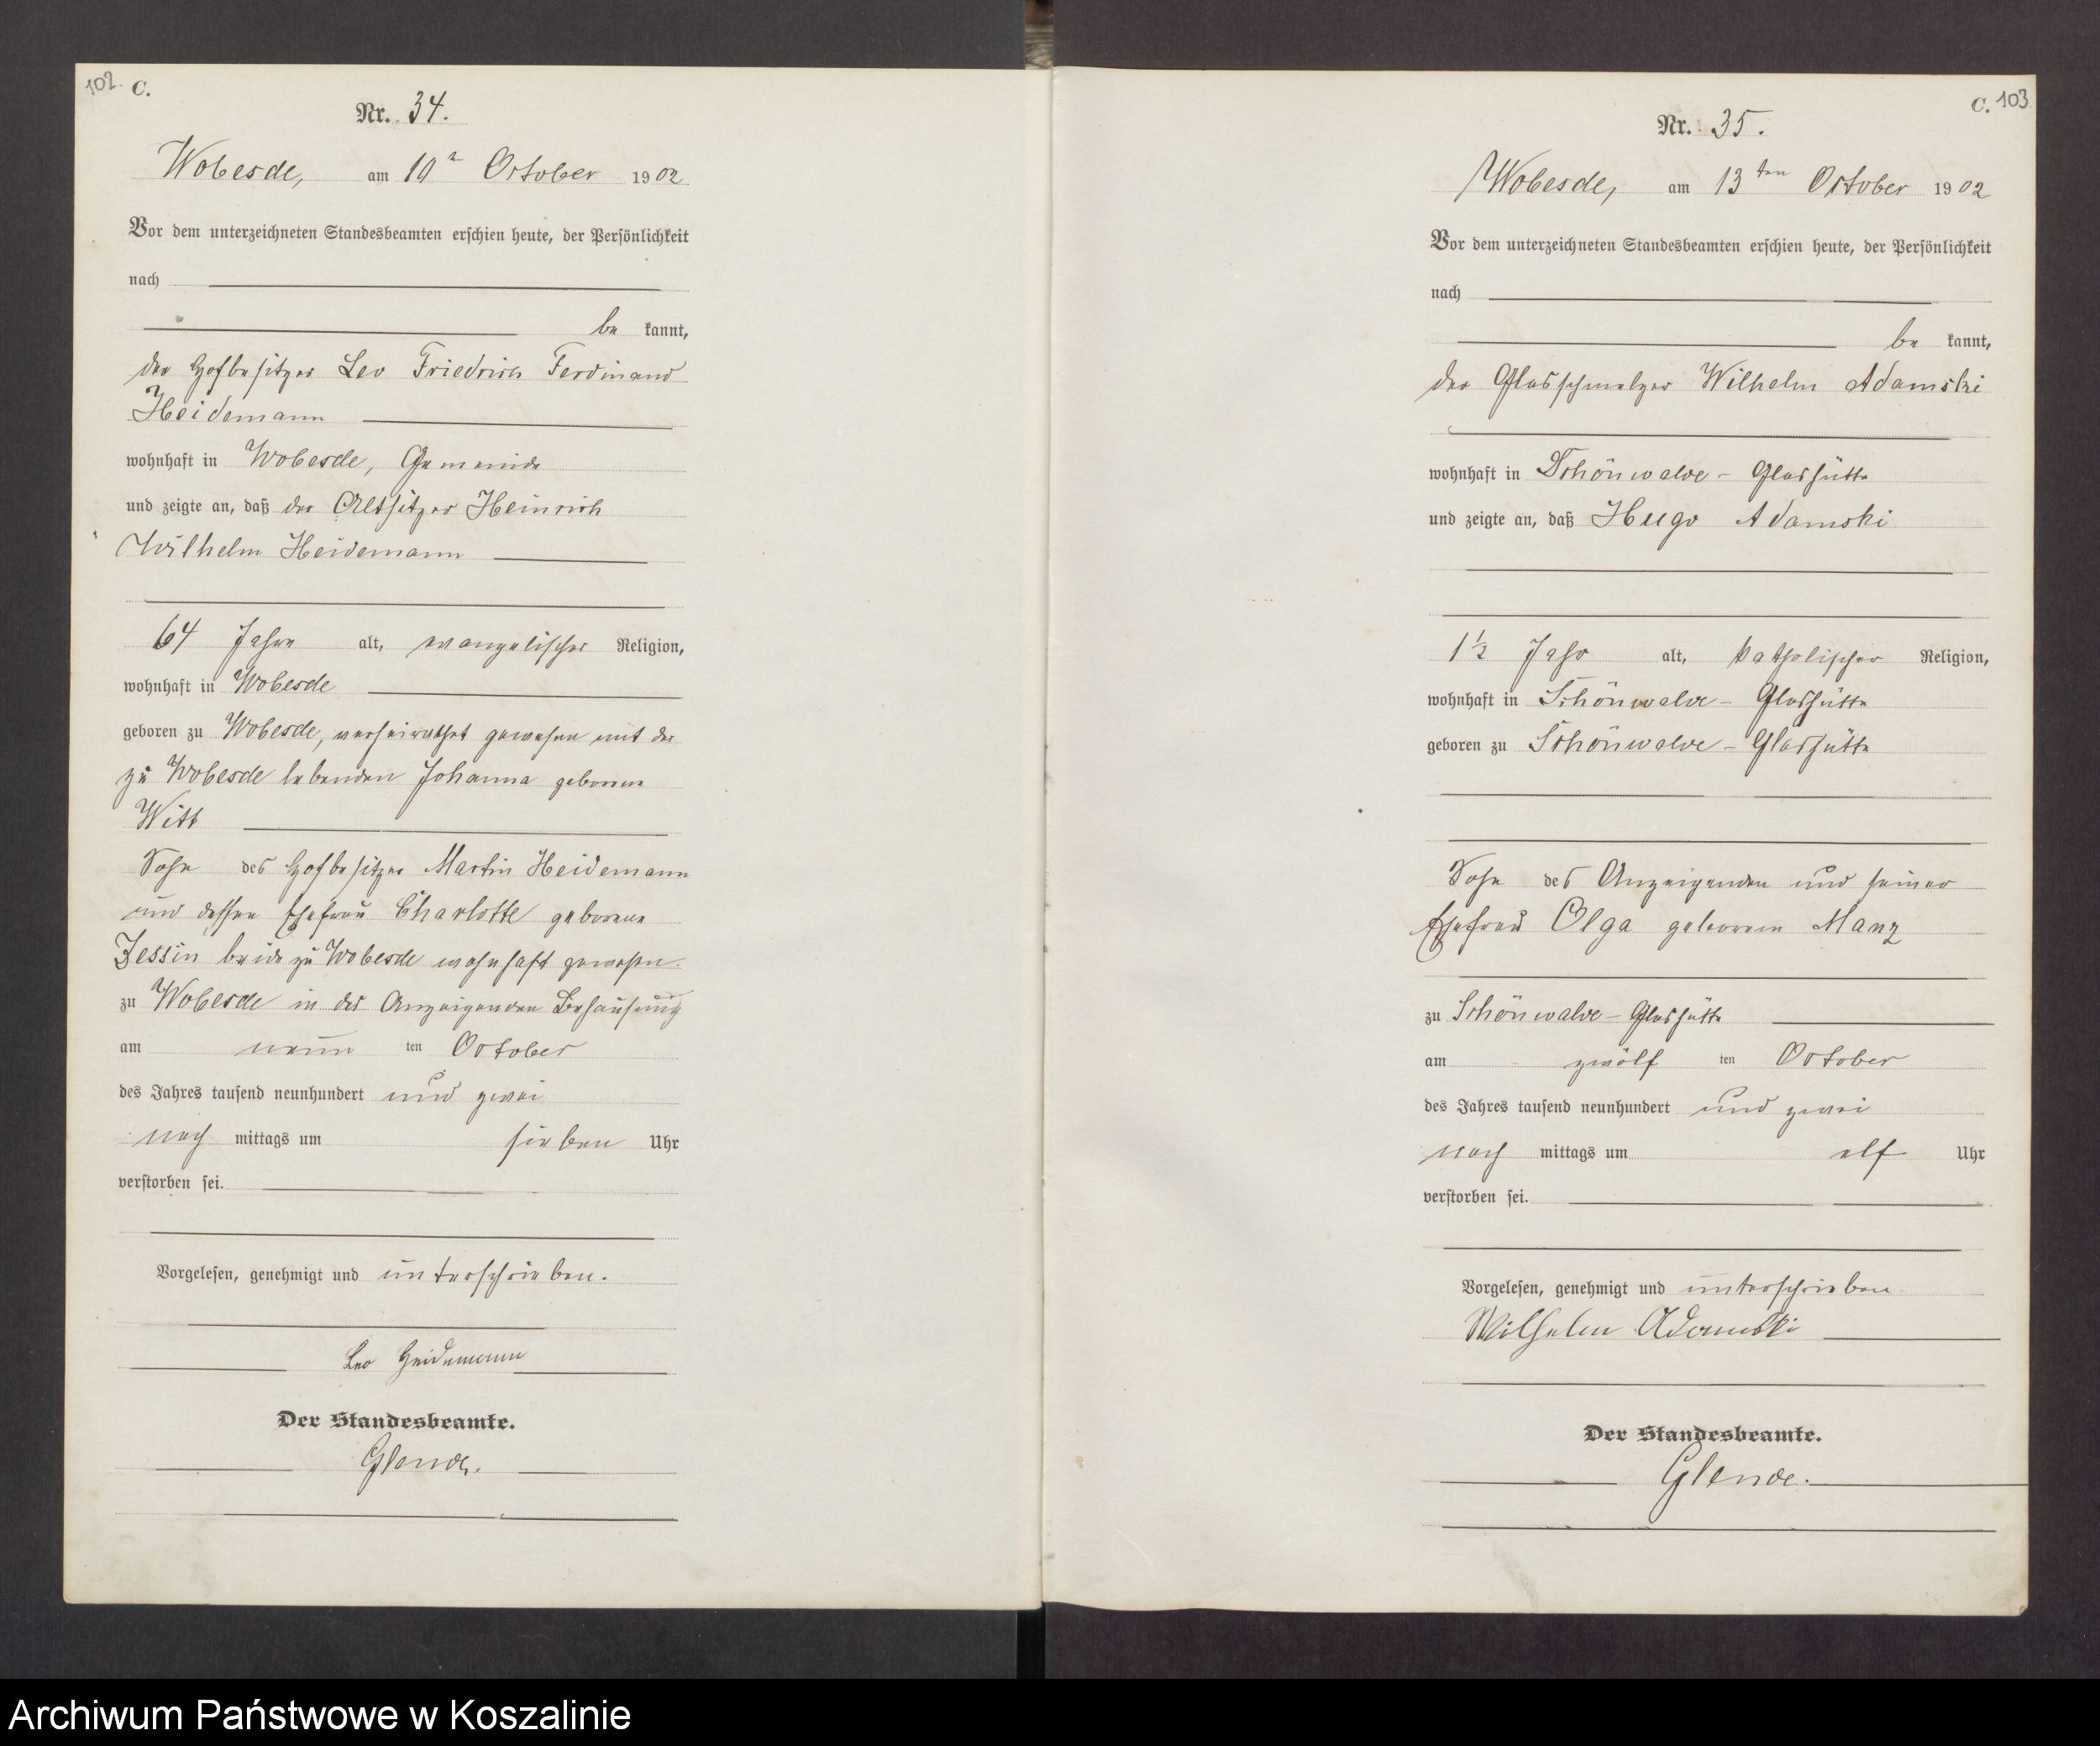 102. C.
Nr. 34.
Wobesde, am 10n October 1902
Vor dem unterzeichneten Standesbeamten erschien heute, der Persönlichkeit
nach
be kannt,
der Hofbesitzer Leo Friedrich Ferdinand
Heidemann
wohnhaft in Wobesde, Gemeinde
und zeigte an, daß der Altsitzer Heinrich
Wilhelm Heidemann
64 Jahre alt, evangelischer Religion,
wohnhaft in Wobesde
geboren zu Wobesde, verheirathet gewesen mit der
zu Wobesde lebenden Johanna geborene
Witt
Sohn des Hofbesitzer Martin Heidemann
und dessen Ehefrau Charlotte geborene
Zessin beide zu Wobesde wohnhaft gewesen.
zu Wobesde in des Anzeigenden Behausung
am neun ten October
des Jahres tausend neunhundert und zwei
nach mittags um sieben Uhr
verstorben sei.
Vorgelesen, genehmigt und unterschrieben.
Leo Heidemann
Der Standesbeamte.
Glende.
C. 103
Nr. 35.
Wobesde, am 13ten October 1902
Vor dem unterzeichneten Standesbeamten erschien heute, der Persönlichkeit
nach
be kannt,
der Glasschmelzer Wilhelm Adamski
wohnhaft in Schönwalde - Glashütte
und zeigte an, daß Hugo Adamski
1½ Jahr alt, katholischer Religion,
wohnhaft in Schönwalde - Glashütte
geboren zu Schönwalde - Glashütte
Sohn des Anzeigenden und seiner
Ehefrau Olga geborene Manz
zu Schönwalde - Glashütte
am zwölf ten October
des Jahres tausend neunhundert und zwei
nach mittags um elf Uhr
verstorben sei.
Vorgelesen, genehmigt und unterschrieben
Wilhelm Adamski
Der Standesbeamte.
Glende.
Archiwum Państwowe w Koszalinie